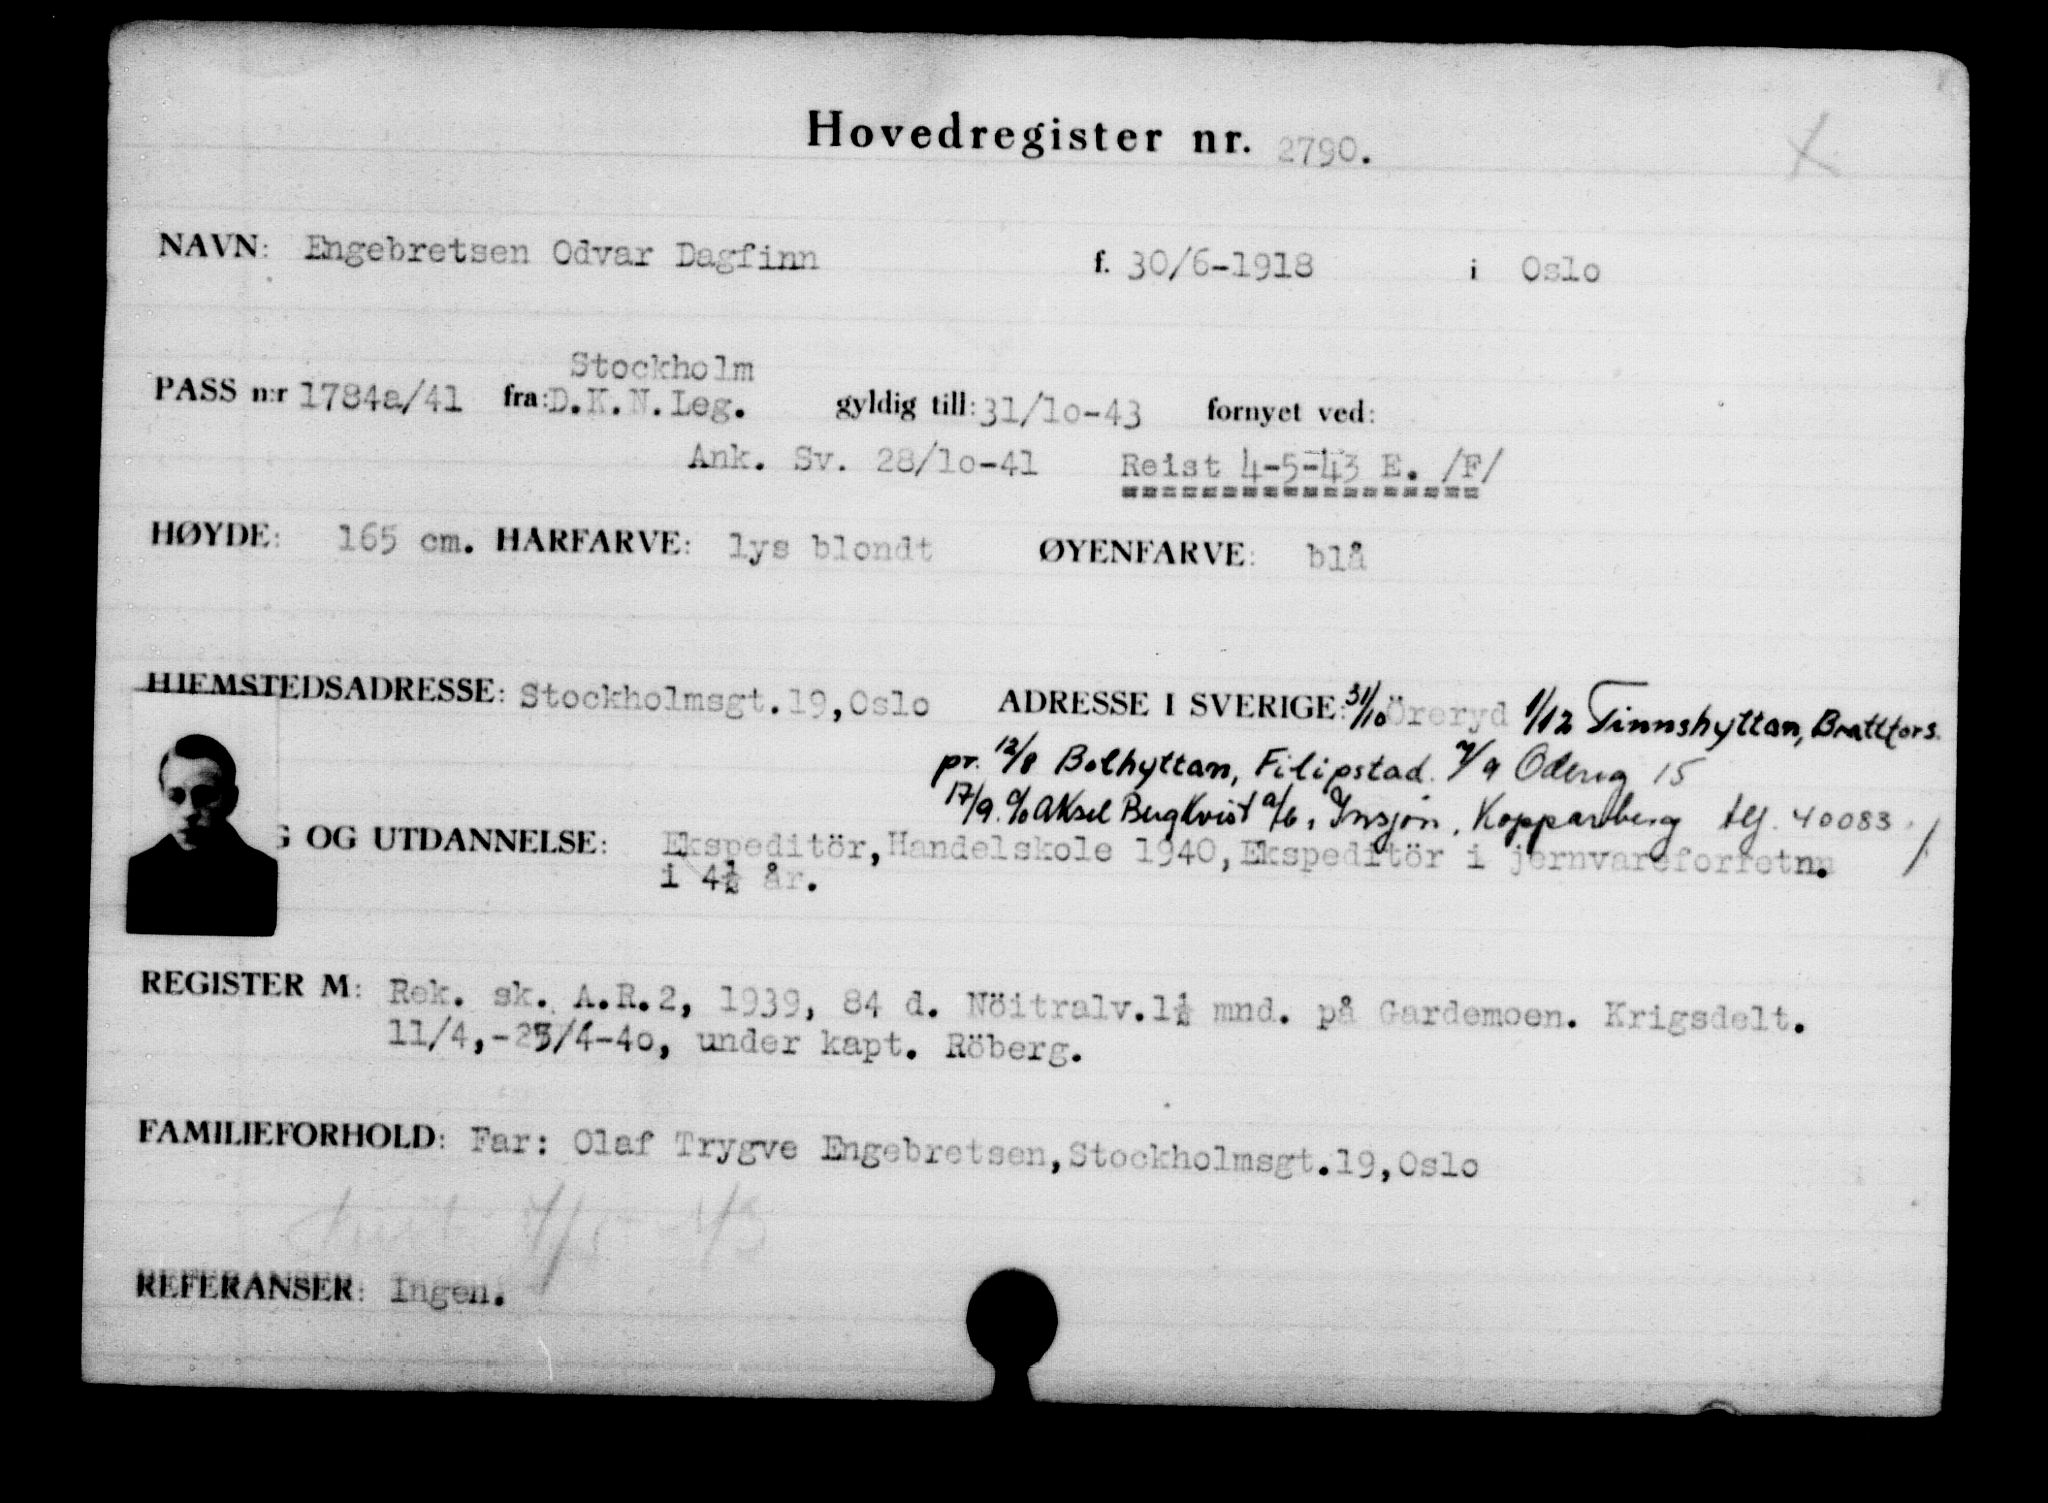 Hovedregister nr. 2790.
NAVN: Engebretsen Odvar Dagfinn f. 30/6-1918 i Oslo
Stockholm
PASS n:r 1784a/41 fra: D.K.N.Leg. gyldig till: 31/10-43 fornyet ved:
Ank. Sv. 28/10-41 Reist 4-5-43 E. /F/
HØYDE: 165 cm. HARFARVE: lys blondt ØYENFARVE: blå
HJEMSTEDSADRESSE: Stockholmsgt.19,Oslo ADRESSE I SVERIGE: 31/10 Öreryd 1/12 Finnshyttan, Brattfors.
pr. 12/8 Bolhyttan, Filipstad. 7/9 Odeng 15
17/9. c/o Aksel Bergkvist a/b, Insjön, Kopparberg tlf. 40083
G OG UTDANNELSE: Ekspeditör, Handelskole 1940, Ekspeditör i jernvareforretn.
i 4½ år.
REGISTER M: Rek. sk. A.R.2, 1939, 84 d. Nöitralv.1½ mnd. på Gardemoen. Krigsdelt.
11/4,-25/4-40, under kapt. Röberg.
FAMILIEFORHOLD: Far: Olaf Trygve Engebretsen,Stockholmsgt.19,Oslo
4/5 - 43
REFERANSER: Ingen.